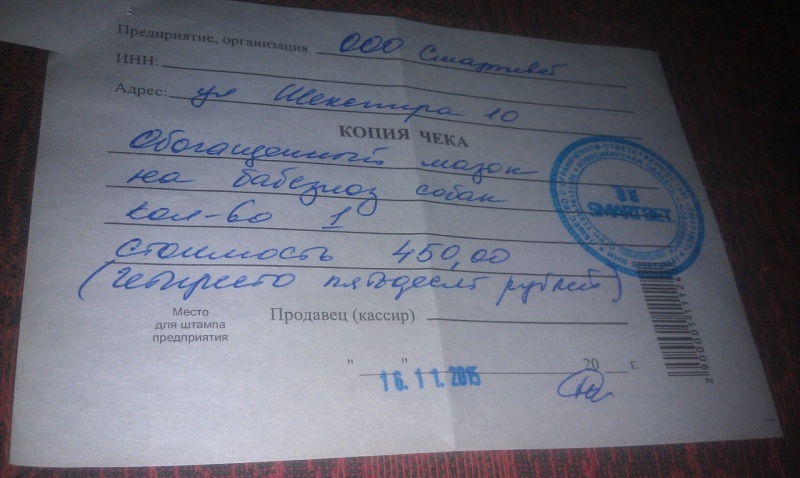 Предприятие, организация ООО Смартвет
ИНН:
Адрес: ул Шекспира 10
КОПИЯ ЧЕКА
Обогащенный мазок
на бабезиоз собак
кол-во 1
стоимость 450,00
(четыресто пятьдесят рублей)
Место
для штампа
предприятия
Продавец (кассир)
" " 20 г.
16.11.2015
SMARTВЕТ